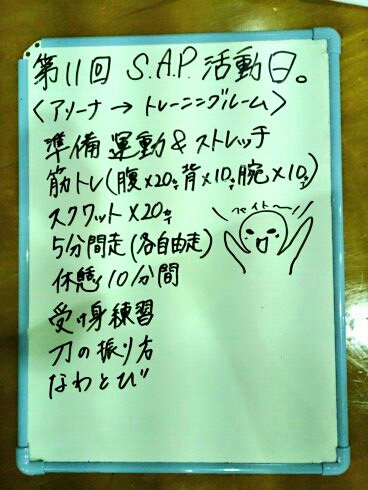 第11回 S.A.P.活動日。
〈アリーナ → トレーニングルーム〉
準備運動&ストレッチ
筋トレ(腹×20 背×10 腕×10)
スクワット×20
5分間走(各自由走)
休憩10分間
受け身練習
刀の振り方
なわとび
ファイト〜!